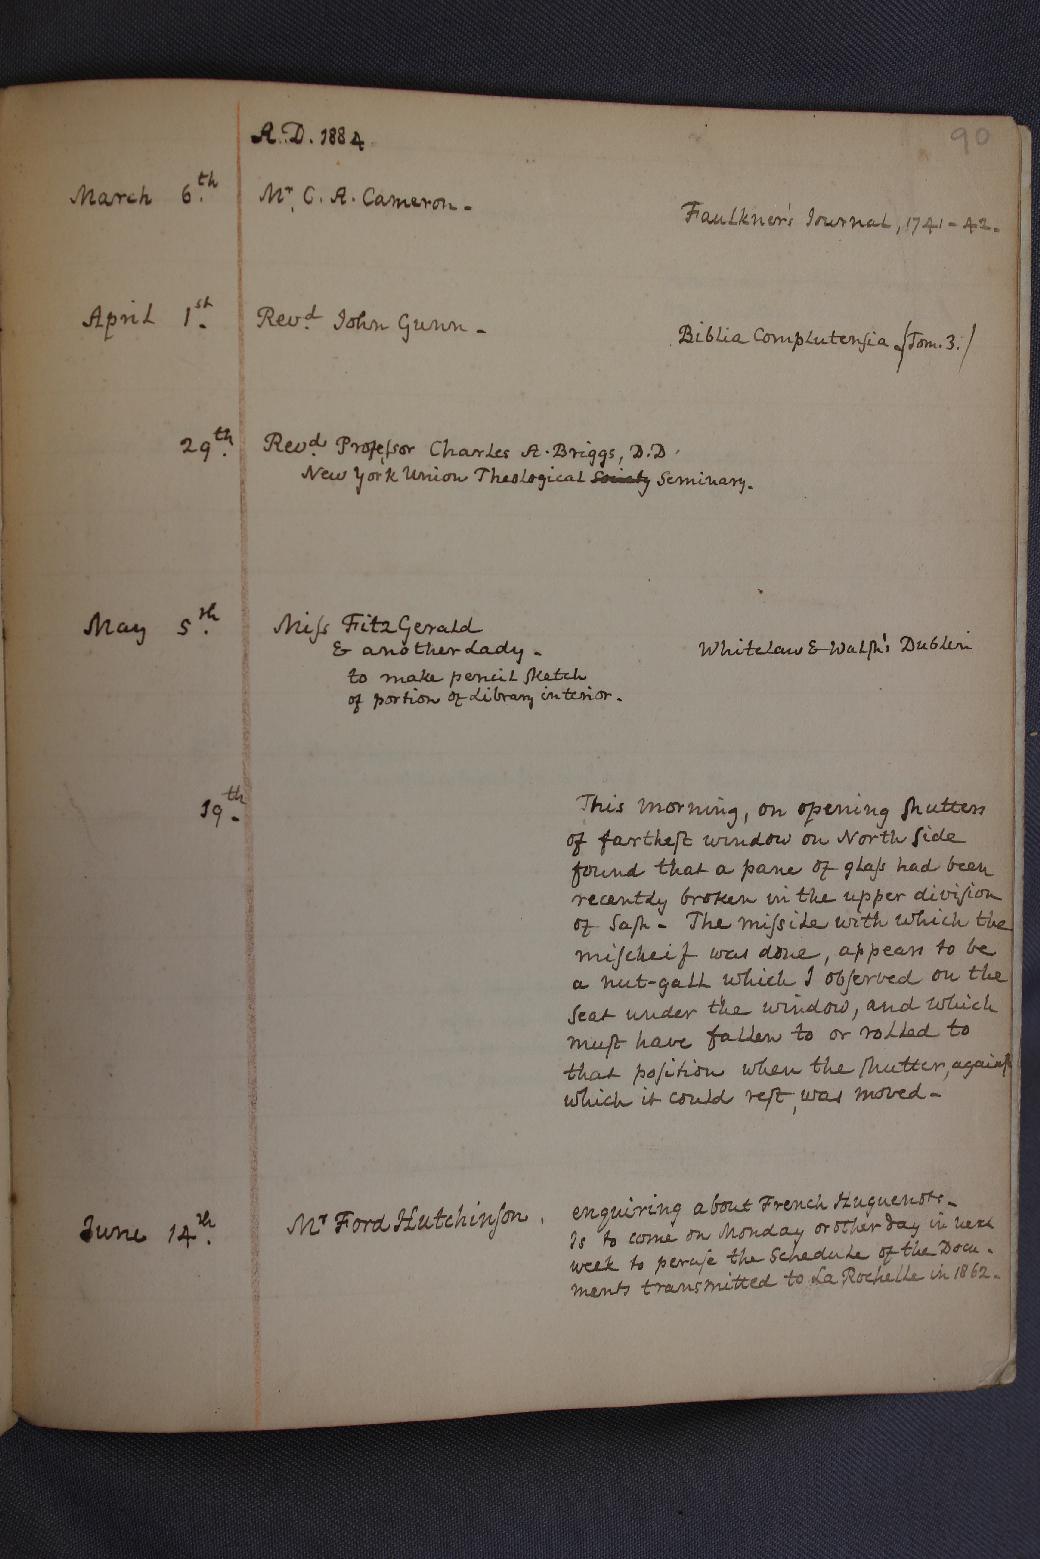 90
A.D. 1884
March 6th. Mr. C. A. Cameron - Faulkner's Journal, 1741-42.
April 1st. Revd. John Gunn - Biblia Complutensia (Tom. 3.)
29th. Revd. Professor Charles A. Briggs, D.D.
New York Union Theological Society Seminary.
May 5th. Miss FitzGerald
& another Lady - Whitelaw & Walsh's Dublin
to make pencil sketch
of portion of Library interior.
19th. This morning, on opening shutters
of farthest window on North Side
found that a pane of glass had been
recently broken in the upper division
of Sash - The missile with which the
mischeif was done, appears to be
a nut-gall which I observed on the
seat under the window, and which
must have fallen to or rolled to
that position when the shutter, against
which it could rest, was moved -
June 14th. Mr Ford Hutchinson. enquiring about French Huguenots -
Is to come on Monday or other day in next
week to peruse the Schedule of the Docu-
ments transmitted to La Rochelle in 1862.